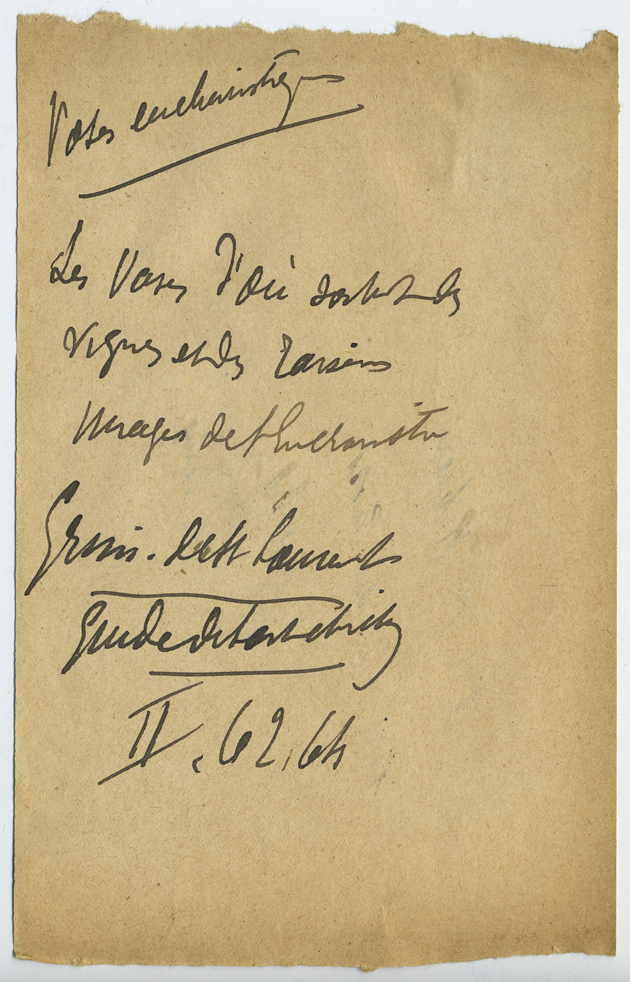 Vases eucharistiques
Les Vases d'où sortent des
vignes et des raisins
Images de l'Eucharistie
Grimouard de St Laurent
Guide de l'art chrétien
II, 62, 64